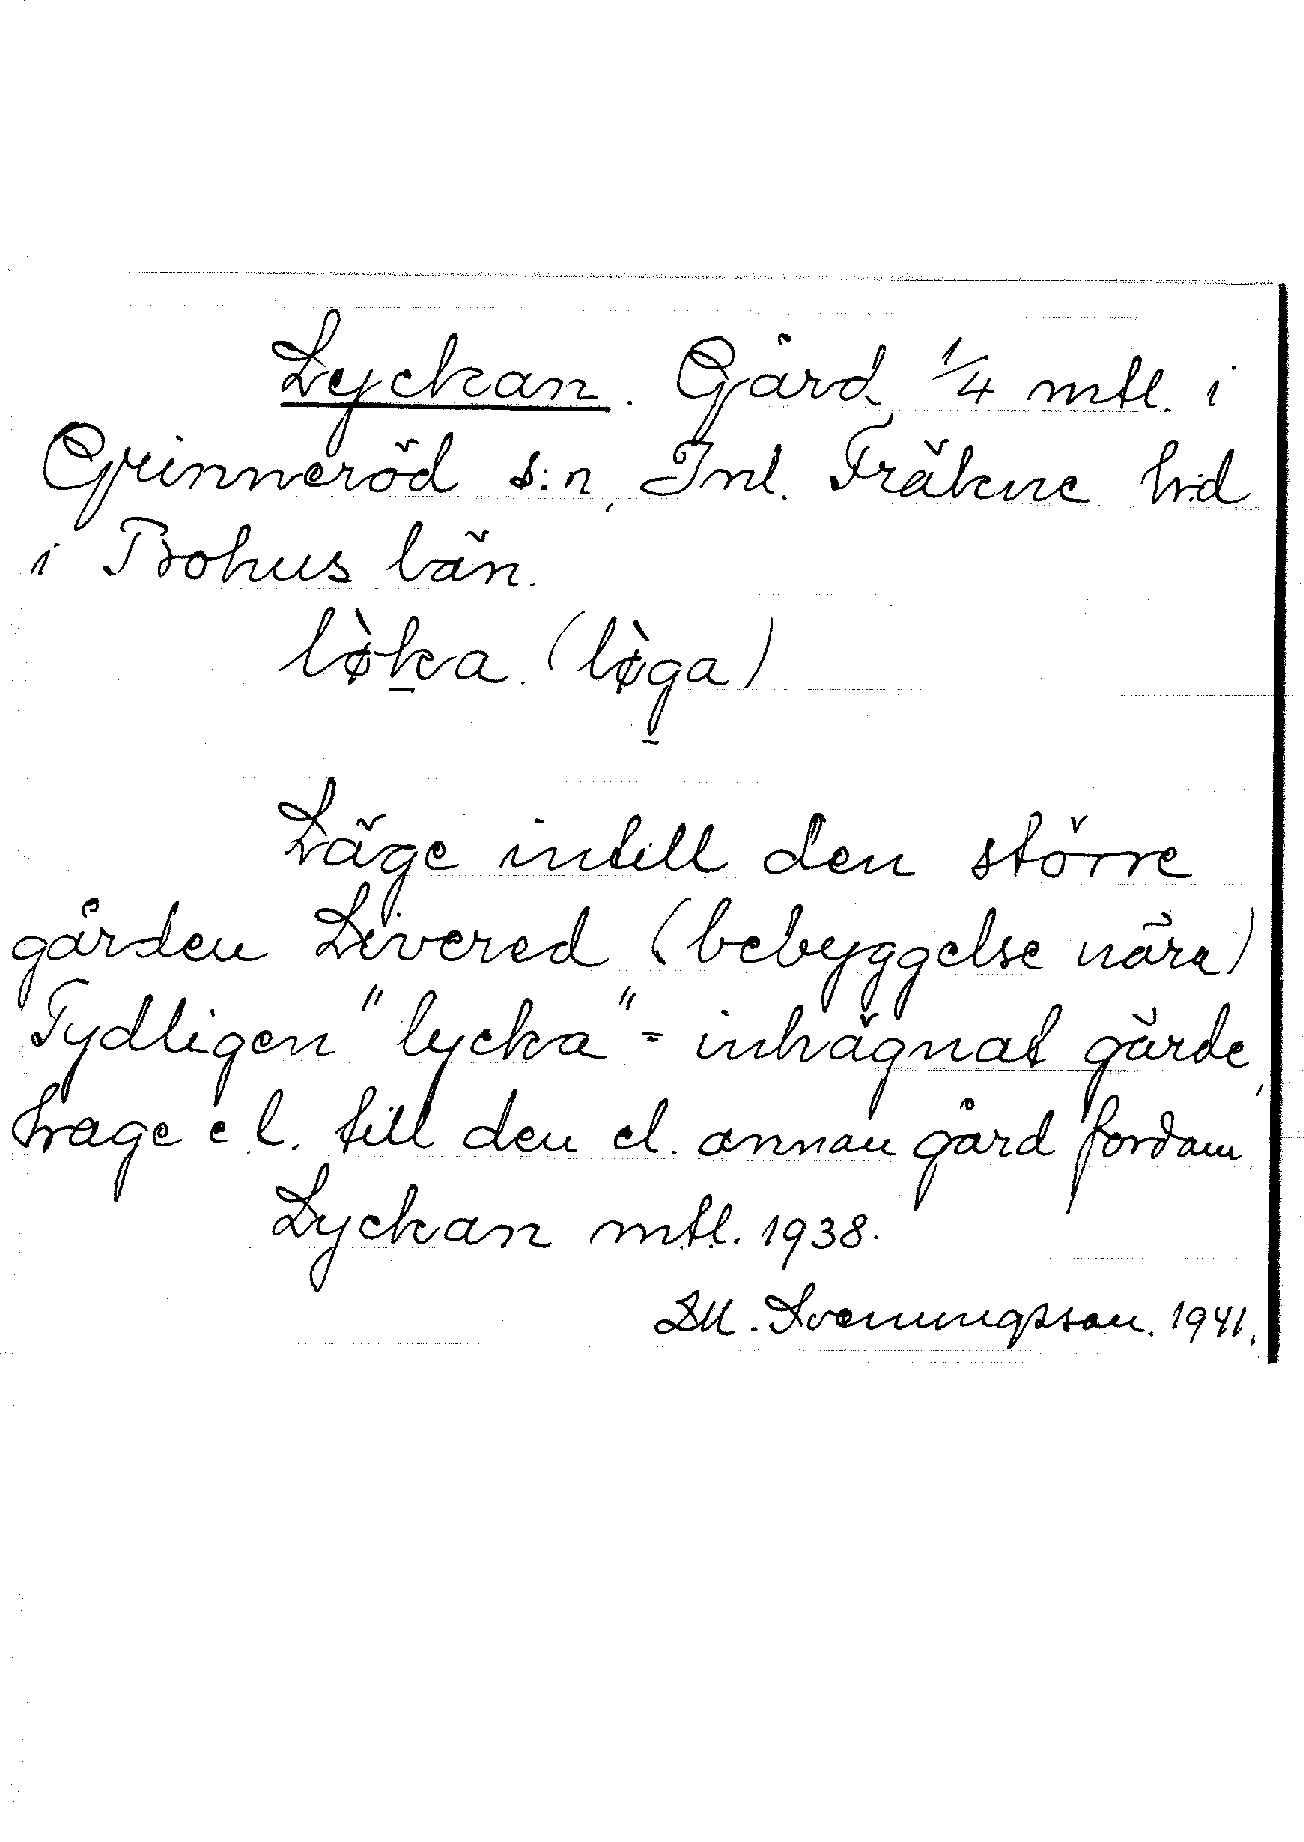 Lyckan. Gård, 1/4 mtl. i
Grinneröd s:n, Inl. Fräkne hrd
i Bohus län.
lø̀ka. (lø̀ga)
Läge intill den större
gården Livered (bebyggelse nära)
Tydligen "lycka" = inhägnat gärde,
hage e l. till den el. annan gård fordom
Lyckan mtl. 1938.
Svenungsson. 1941.